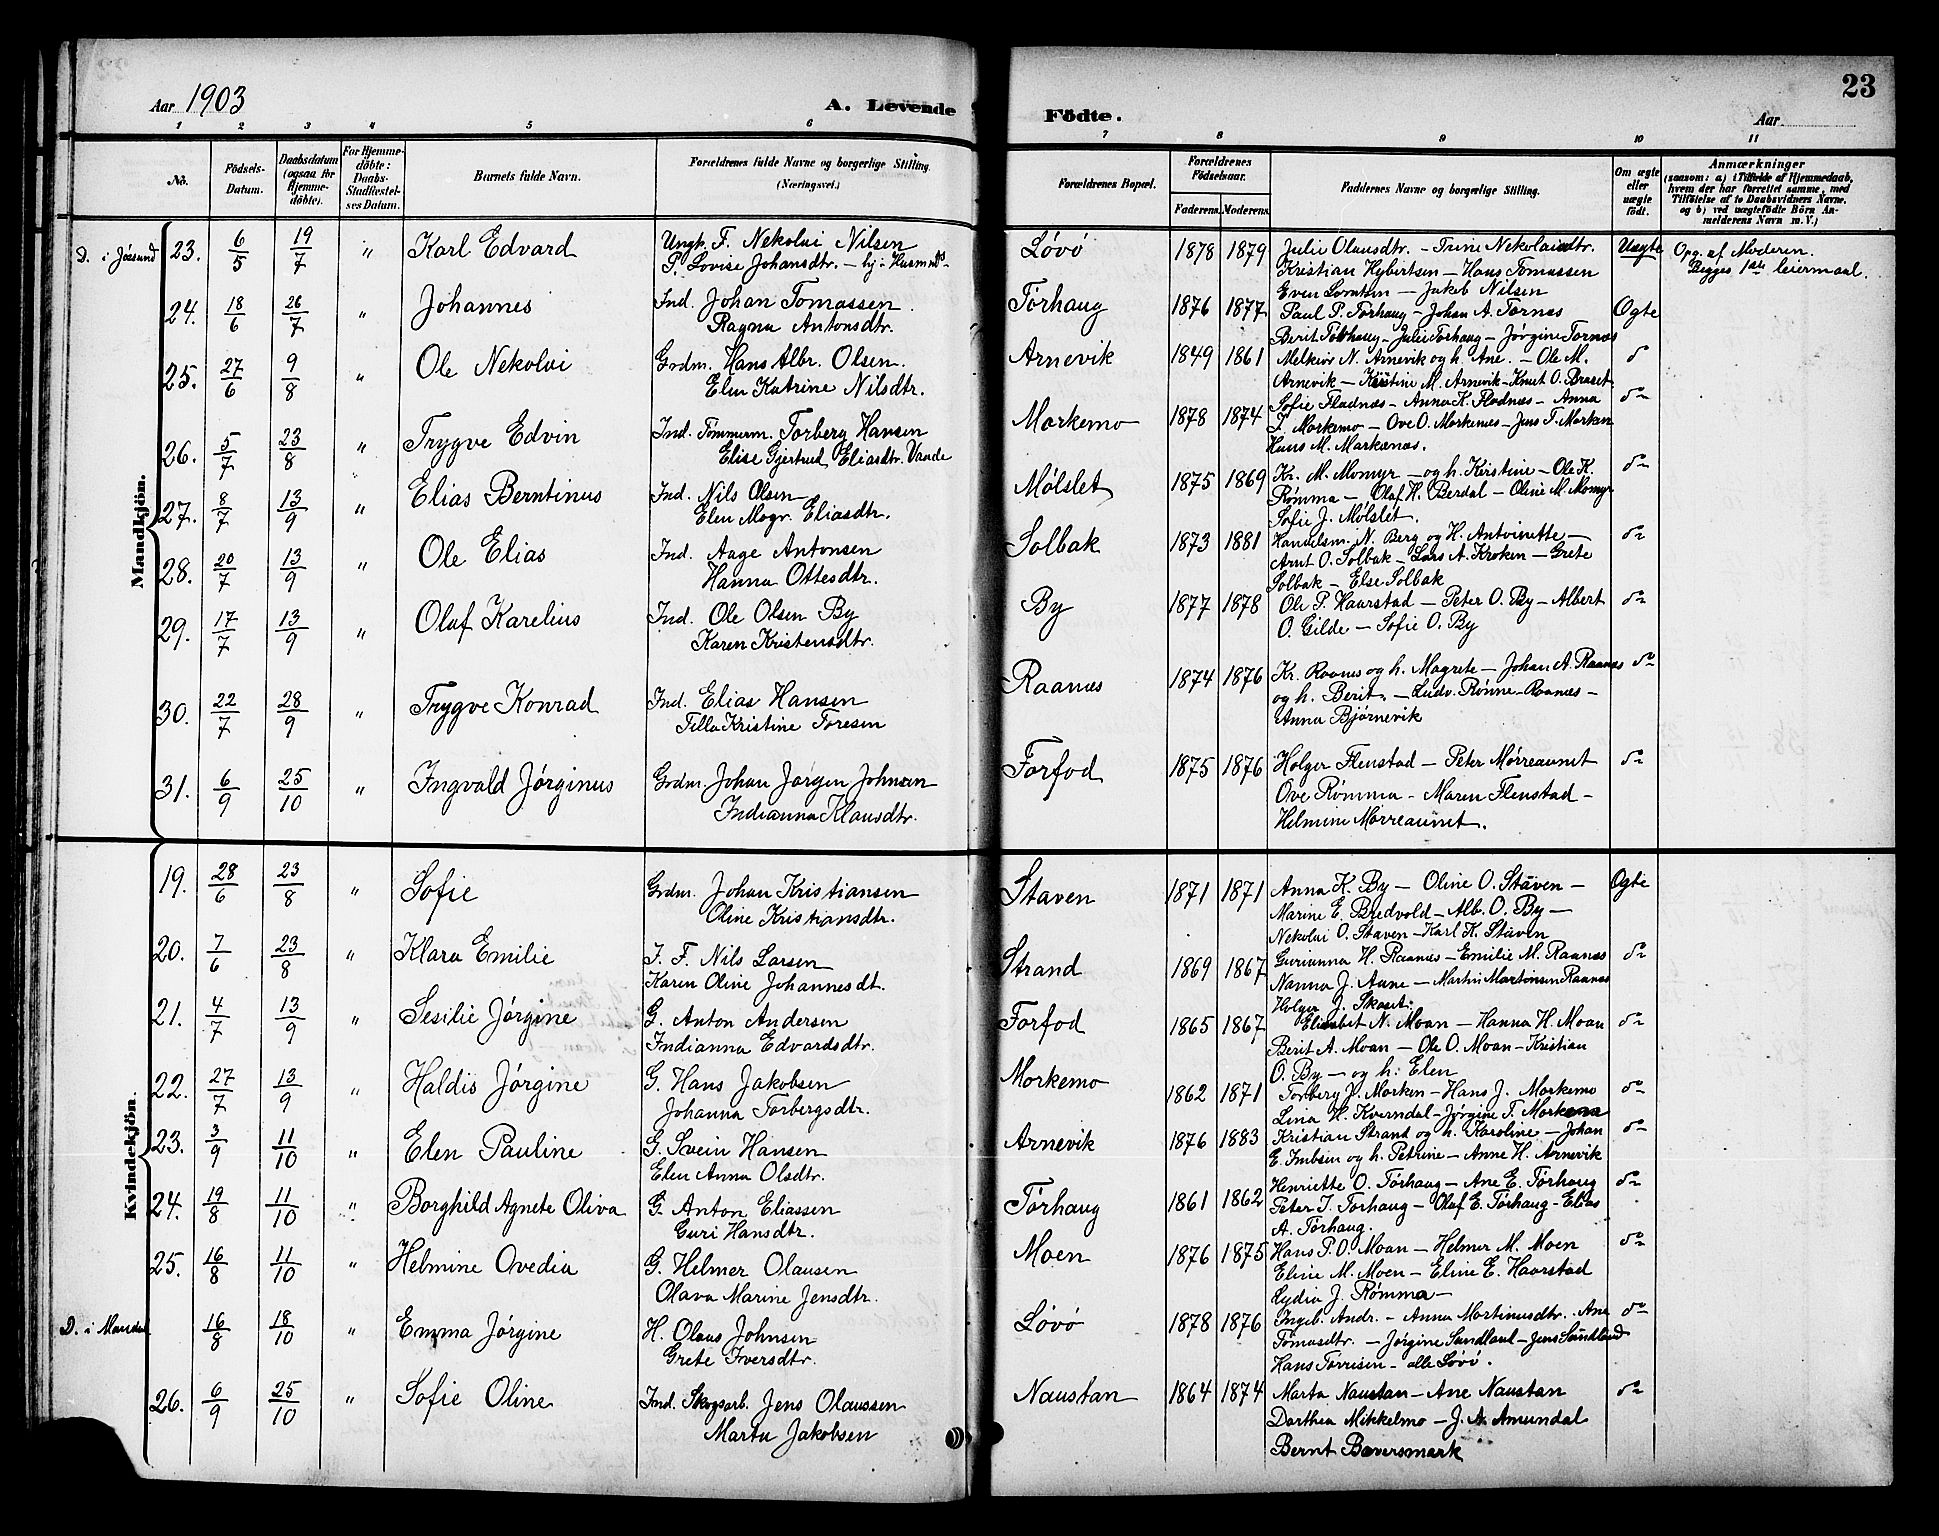 Aar 1903
A. Levende
Födte.
Aar
23
1 2 3 4 5 6 7 8 9 10 11
No.
Födsels-
Datum.
Daabsdatum
(ogsaa for
Hjemme-
döbte).
For Hjemme-
döbte:
Daabs-
Stadfæstel-
ses Datum.
Barnets fulde Navn.
Forældrenes fulde Navne og borgerlige Stilling.
(Næringsvei.)
Forældrenes Bopæl.
Forældrenes
Födselsaar.
Faderens. Moderens.
Faddernes Navne og borgerlige Stilling.
Om ægte
eller
uægte
födt.
Anmærkninger
(saasom: a) i Tilfælde af Hjemmedaab,
hvem der har forrettet samme, med
Tilföielse af to Daabsvidners Navne.
og b) ved uægtefödte Börn An-
melderens Navn m. V.)
Mandkjön.
D. i Jøssund 23. 6/5 19/7 " Karl Edvard Ungk. F. Nekolai Nilsen Løvø 1878 1879 Julie Olausdtr. - Trine Nekolaidtr. Uægte Opg. af Moderen.
P. Lovise Johansdtr. - hj: Husmds. Kristian Hybertsen - Hans Tomassen Begges 1ste leiermaal.
Even Lorntsen - Jakob Nilsen
24. 18/6 26/7 " Johannes Ind. Johan Tomassen Tørhaug 1876 1877 Paul P. Tørhaug - Johan A. Tørnæs Ægte
Ragna Antonsdtr. Berit Tørhaug - Julie Tørhaug - Jørgine Tornæs
25. 27/6 9/8 " Ole Nekolai Grdm. Hans Albr. Olsen Arnevik 1849 1861 Melkior N. Arnevik og h. Ane. - Ole M.
Elen Katrine Nilsdtr. Arnevik - Kristine M. Arnevik - Knut O. Braset.
26. 5/7 23/8 " Trygve Edvin Ind. Tømmerm. Torberg Hansen Morkemo 1878 1874 Sofie Fladnæs - Anna K. Fladnæs - Anna do
Elise Gjertrud Eliasdtr. Vaade J. Morkemo - Ove O. Morkenæs - Jens T. Morken
Hans M. Markænæs.
27. 8/7 13/9 " Elias Berntinus Ind. Nils Olsen Mølslet 1875 1869 Kr. M. Momyr - og h. Kristine - Ole K. do
Elen Magr. Eliasdtr. Rømma - Olaf H. Berdal - Oline M. Momyr
Sofie J. Mølslet.
28. 20/7 13/9 " Ole Elias Ind. Aage Antonsen Solbak 1873 1881 Handelsm. N. Berg og H. Antoinette - do
Hanna Ottesdtr. Arnt O. Solbak - Lars A. Kroken - Grete
Solbak - Else Solbak
29. 17/7 13/9 " Olaf Karelius Ind. Ole Olsen By By 1877 1878 Ole P. Haarstad - Peter O. By - Albert do
Karen Kristensdtr. O. Gilde - Sofie O. By
30. 22/7 28/9 " Trygve Konrad Ind. Elias Hansen Raanæs 1874 1876 Kr. Raanes og h. Magrete - Johan A. Raanæs do
Tilla Kristine Toresen og h. Berit. - Ludv. Rønne - Raanæs -
Anna Bjørnevik
31. 6/9 25/10 " Ingvald Jørginus Grdm. Johan Jørgen Johnsen Forfod 1875 1876 Holger Flenstad - Peter Mørreaunet do
Indianna Klausdtr. Ove Rømma - Maren Flenstad -
Helmine Mørreaunet.
Kvindekjön.
19. 28/6 23/8 " Sofie Grdm. Johan Kristiansen Staven 1871 1871 Anna K. By - Oline O. Stäven - Ægte
Oline Kristiansdtr. Marine E. Bredvold - Alb. O. By -
Nekolai O. Staven - Karl K. Stäven
20. 7/6 23/8 " Klara Emilie I. F. Nils Larsen Strand 1869 1867 Gurianna H. Raanes - Emilie M. Raanæs do
Karen Oline Johannesdt. Nanna J. Aune - Martin Martinsen Raanæs
Holger J. Skaset.
21. 4/7 13/9 " Sesilie Jørgine G. Anton Andersen Forfod 1865 1867 Elisabet N. Moan - Hanna H. Moan do
Indianna Edvardsdtr. Berit A. Moan - Ole O. Moan - Kristian
O. By - og h: Elen
22. 27/7 13/9 " Haldis Jørgine G. Hans Jakobsen Morkemo 1862 1871 Torberg P. Morken - Hans J. Morkemo do
Johanna Torbergsdtr. Lina H. Kverndal - Jørgine T. Morkemo
23. 3/9 11/10 " Elen Pauline G. Svein Hansen Arnevik 1876 1883 Kristian Strand og h. Karoline - Johan do
Elen Anna Olsdtr. E. Imbsen og h. Petrine - Anne H. Arnevik
24. 19/8 11/10 " Borghild Agnete Oliva G. Anton Eliassen Tørhaug 1861 1862 Henriette O. Tørhaug - Ane E. Tørhaug do
Guri Hansdtr. Peter I. Torhaug - Olaf E. Tørhaug - Elias
A. Tørhaug.
25. 16/8 11/10 " Helmine Ovedia G. Helmer Olausen Moen 1876 1875 Hans P. O. Moan - Helmer M. Moen do
Olava Marine Jensdtr. Eline M. Moen - Eline E. Haarstad
Lydia J. Rømma -
16/8 18/10 " Emma Jørgine H. Olaus Johnsen Løvø 1878 1876 Ingeb. Andr. - Anna Martinusdtr. Ane do
Grete Iversdtr. Tomasdtr. - Jørgine Sundland - Jens Sundland
Hans Torrisen - alle Løvø.
26. 6/9 25/10 " Sofie Oline Ind. Skogsarb. Jens Olaussen Naustan 1864 1874 Marta Naustan - Ane Naustan do
Marta Jakobsen Dorthea Mikkelmo - J. A. Amundal
Bernt Bæversmark